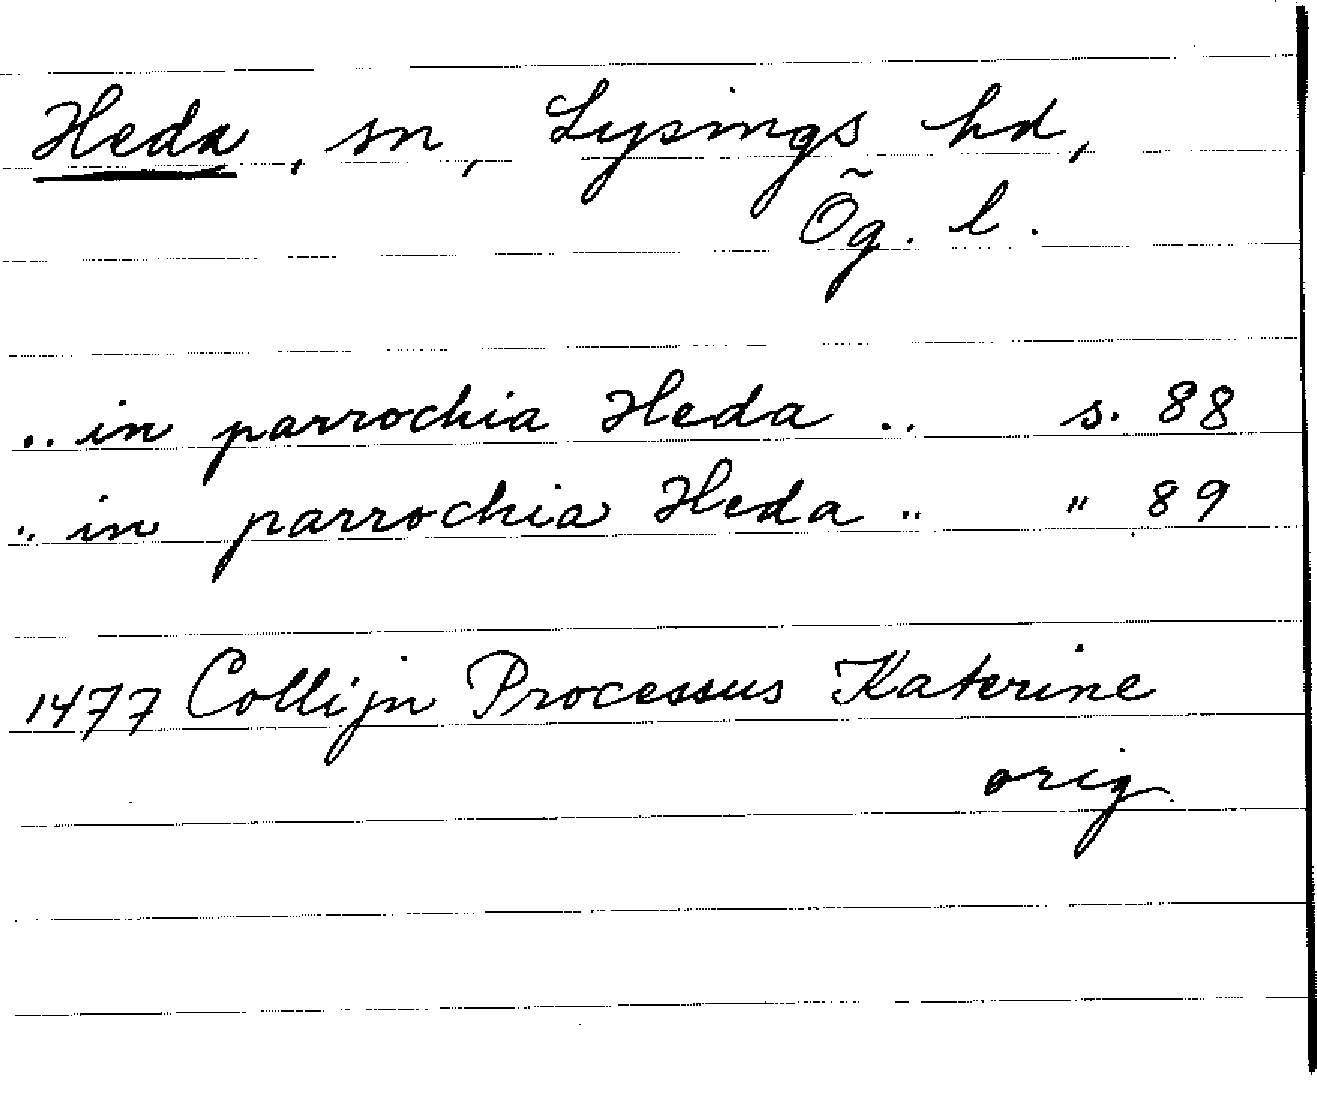 Heda, sn, Lysings hd,
Õg. l.
.. in parrochia Heda .. s. 88
.. in parrochia Heda .. " 89
1477 Collijn Processus Katerine
orig.